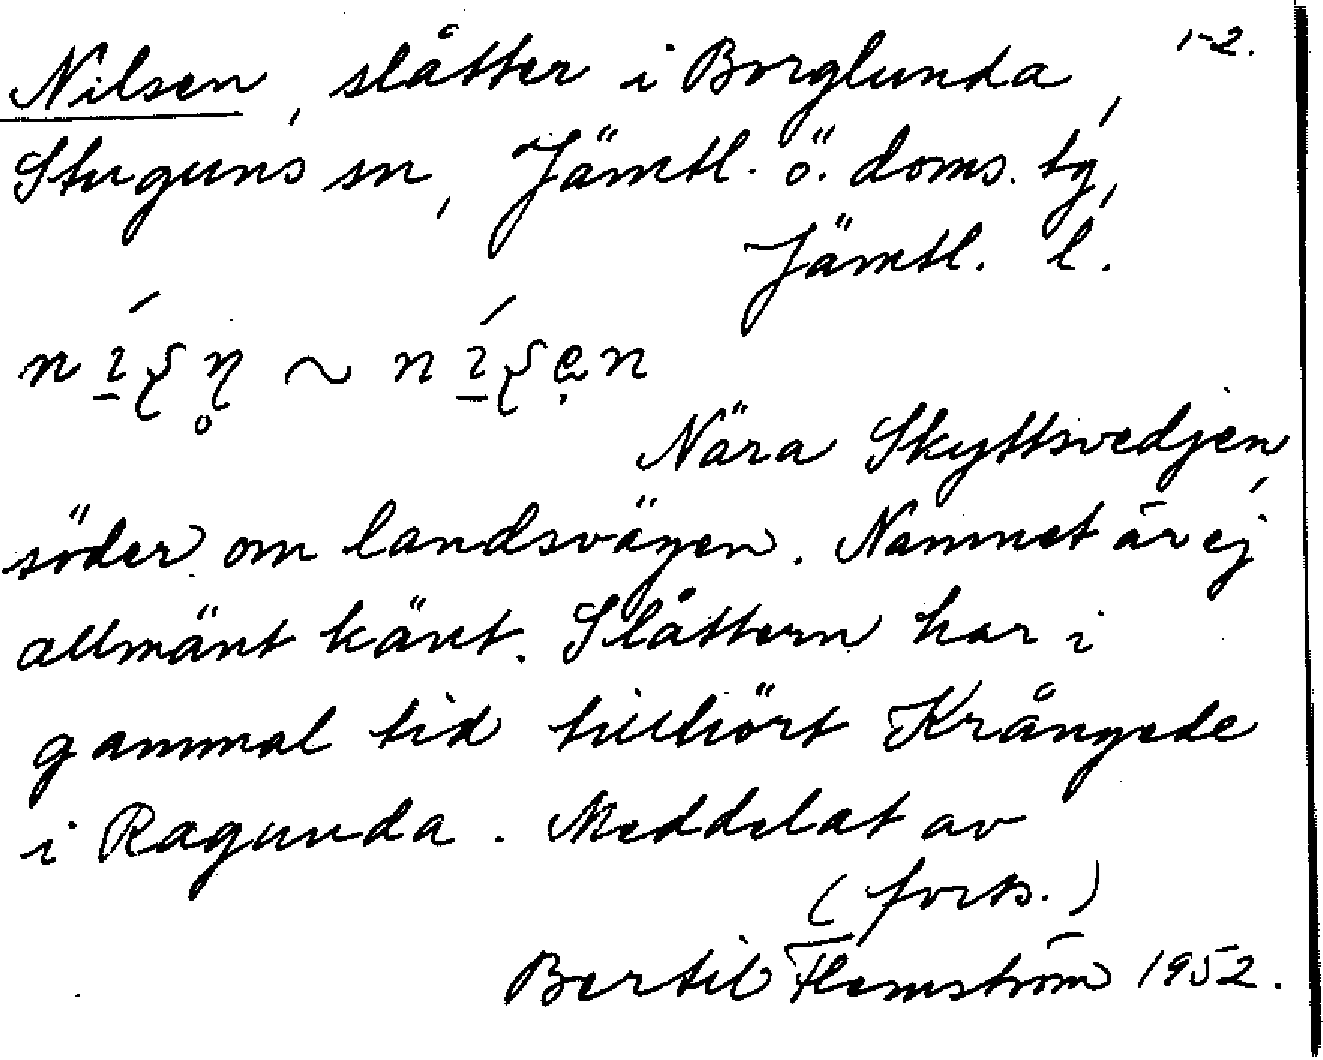 1-2.
Nilsen, slåtter i Borglunda,
Stuguns sn, Jämtl. ö. doms. tg,
Jämtl. l.
Nära Skyttsvedjen,
söder om landsvägen. Namnet är ej
allmänt känt. Slåttern har i
gammal tid tillhört Krångede
i Ragunda. Meddelat av
(forts.)
Bertil Flemström 1952.